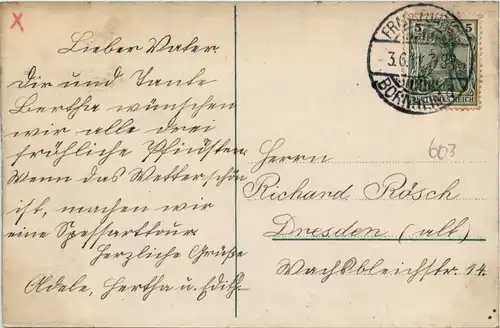 Lieber Vater.
Dir und Tante
Bertha wünschen
wir alle drei
fröhliche Pfingsten.
Wenn das Wetter schön
ist, machen wir
eine Spessarttour.
Herzliche Grüße
Adele, Hertha u. Edith
5 5
3.6.
BORNHEIM
REICH
603
Herrn
Richard Rösch
Dresden (alt)
Wachsbleichstr. 14.